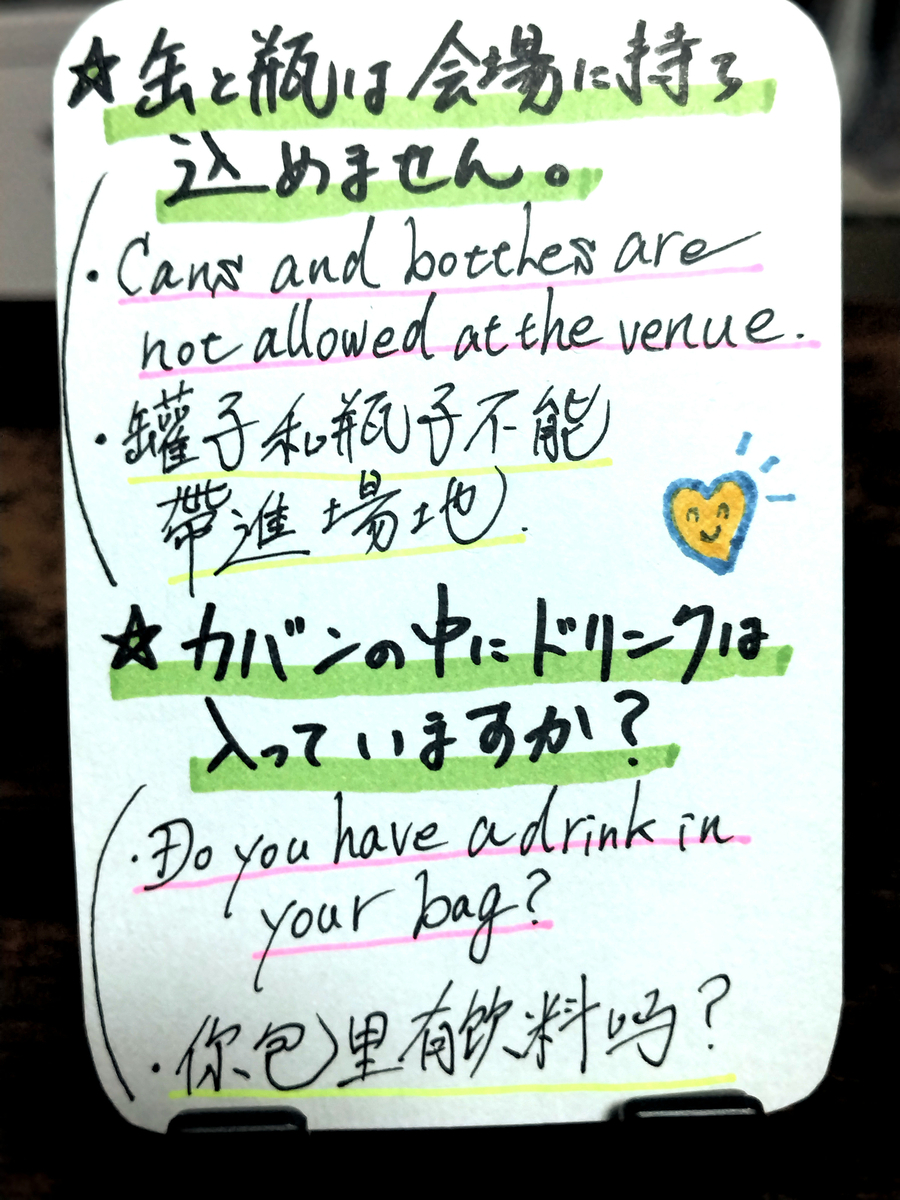 ☆缶と瓶は会場に持ち
込めません。
・Cans and bottles are
not allowed at the venue.
・罐子和瓶子不能
帶進場地.
☆カバンの中にドリンクは
入っていますか?
・Do you have a drink in
your bag?
・你包里有飲料吗?